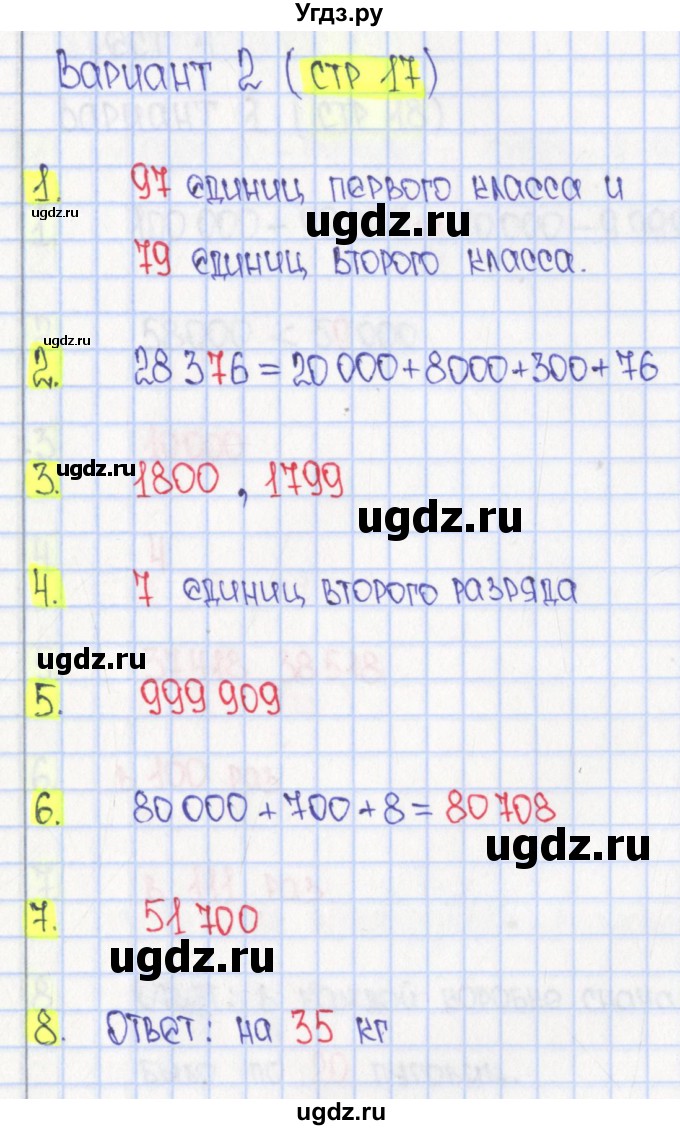 Угдз.ру
Вариант 2 (стр 17)
1. 97 единиц первого класса и
ugdz.ru
ugdz.ru
79 единиц второго класса.
ugdz.ru
2. 28 376 = 20 000 + 8000 + 300 + 76
3. ugdz.ru 1800 , 1799
ugdz.ru
4. 7 единиц второго разряда
ugdz.ru
5. 999 909
6. 80 000 + 700 + 8 = 80 708
ugdz.ru
7. 51 700
ugdz.ru
8. Ответ: на 35 кг
ugdz.ru